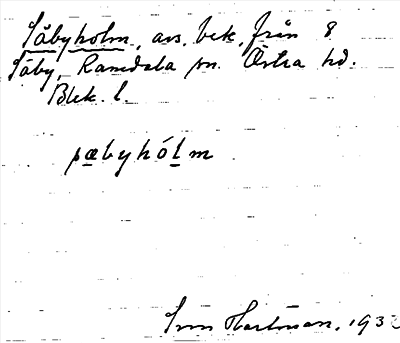 Såbyholm, avs. bek. från 8
Såby, Ramdala sn. Östra hd.
Blek. l.
sæbyhólm
Hartman, 193